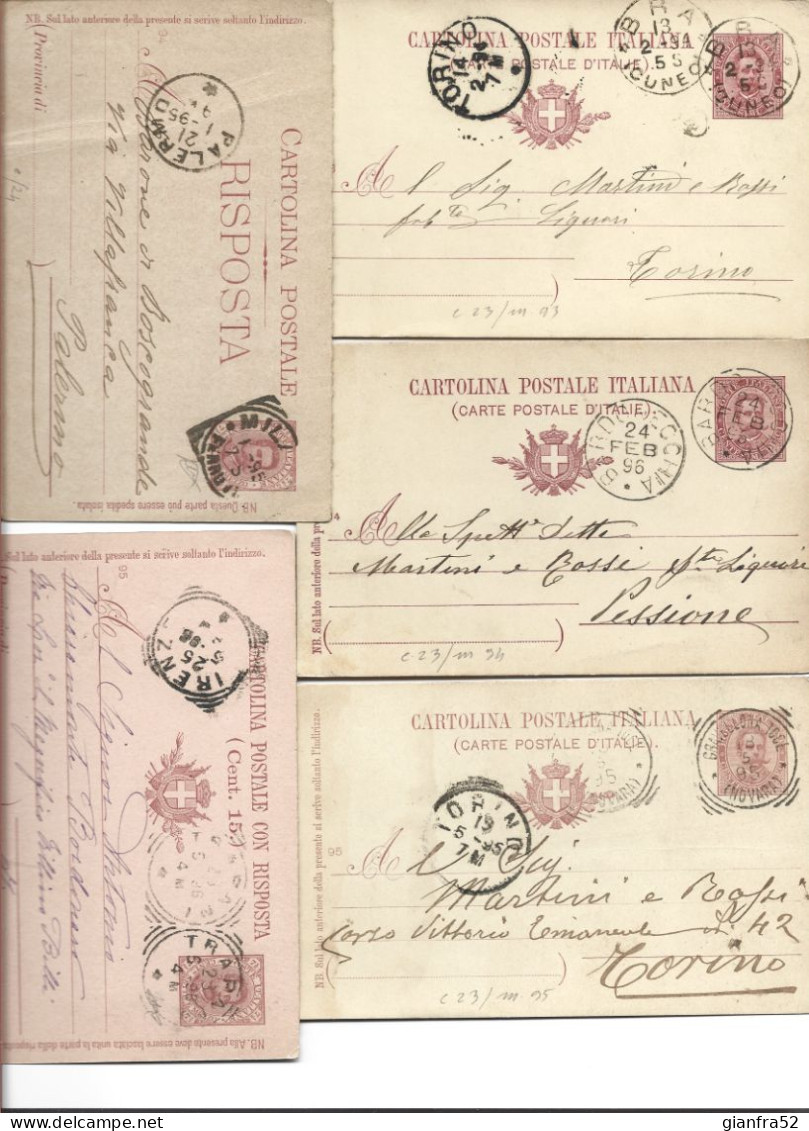 NB. Sul lato anteriore della presente si scrive soltanto l'indirizzo.
CARTOLINA POSTALE
RISPOSTA
PALERMO
21
1 - 95
Barone di Boscogrande
Via Villafranca
Palermo
(Provincia di
)
NB. Questa parte può essere spedita isolata.
CARTOLINA POSTALE ITALIANA
(CARTE POSTALE D'ITALIE)
TORINO
14
2-94
BRA
13
2-94
5 S
(CUNEO)
BRA
13
(CUNEO)
Al Sig. Martini e Rossi
fabte Liquori
Torino
c 23/m 93
CARTOLINA POSTALE ITALIANA
(CARTE POSTALE D'ITALIE).
BARDONECCHIA
24
FEB
96
24
FEB
NB. Sul lato anteriore della presente si scrive soltanto l'indirizzo.
Alla Spett. Ditta
Martini e Rossi fte Liquori
Pessione
c-23/m 94
Sul lato anteriore della presente si scrive soltanto l'indirizzo.
95
CARTOLINA POSTALE CON RISPOSTA
(Cent. 15)
TRAPANI
Al Signor Antonio
NB. Alla presente devo essere lasciata unita la parte della risposta
CARTOLINA POSTALE ITALIANA
(CARTE POSTALE D'ITALIE).
5
95
(NOVARA)
TORINO
19
5 - 95
7 M
95
NB. Sul lato anteriore della presente si scrive soltanto l'indirizzo.
Al Sig.
Martini e Rossi
Corso Vittorio Emanuele N. 42
Torino
c 23/m 95
gianfra52